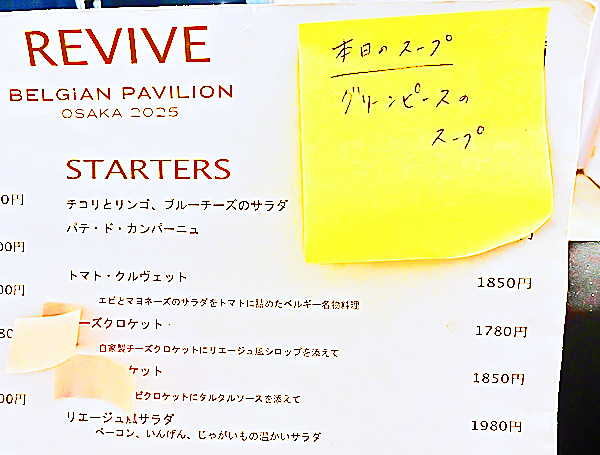 REVIVE
BELGiAN PAVILION
OSAKA 2025
本日のスープ
グリーンピースの
スープ
STARTERS
チコリとリンゴ、ブルーチーズのサラダ
パテ・ド・カンパーニュ
トマト・クルヴェット 1850円
エビとマヨネーズのサラダをトマトに詰めたベルギー名物料理
ーズクロケット 1780円
自家製チーズクロケットにリエージュ風シロップを添えて
ケット 1850円
ビクロケットにタルタルソースを添えて
リエージュ風サラダ 1980円
ベーコン、いんげん、じゃがいもの温かいサラダ
0円
00円
00円
80
00円